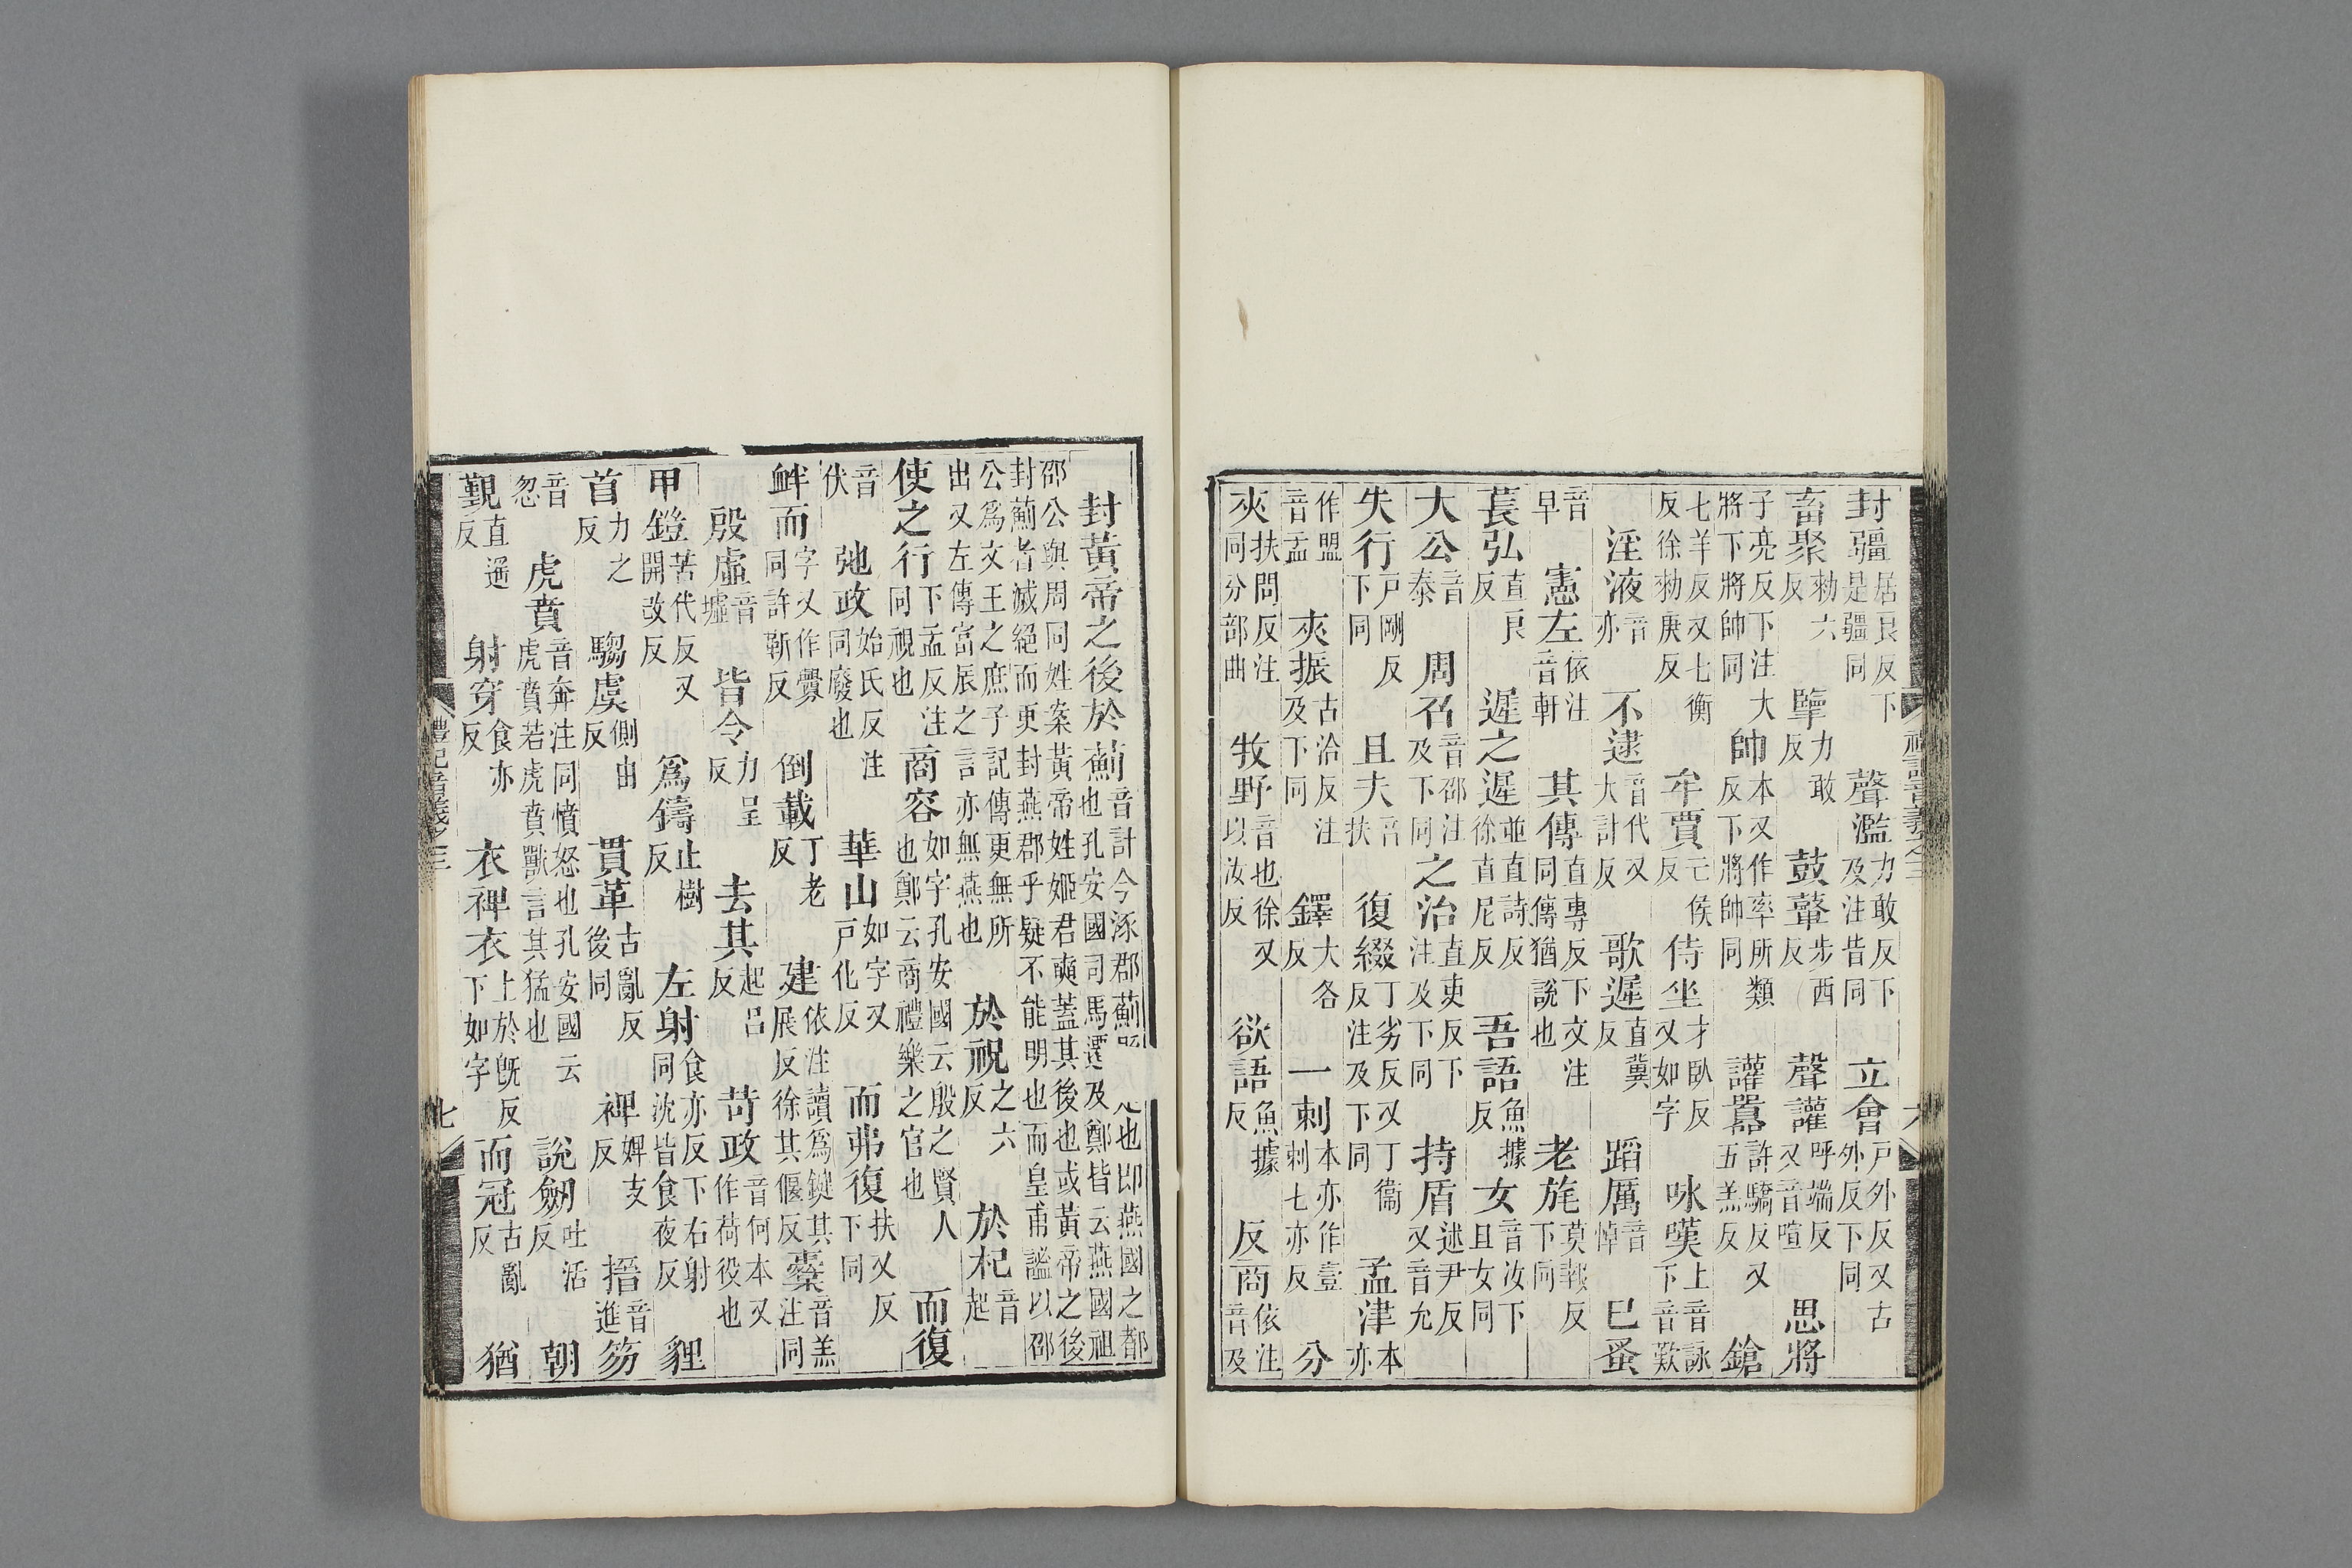 禮記音義之三 六
封疆居良反下是疆同聲濫力敢反下及注皆同立會戶外反又古外反下同
畜聚勑六反擥力敢反鼓鼙步西反聲讙呼端反又音喧思將
子亮反下注大將下將帥同帥本又作率所類反下將帥同讙囂許驕反又五羔反鎗
七羊反又七衡反徐勑庚反牟賈亡侯反侍坐才臥反又如字咏嘆上音詠下音歎
淫液音亦不逮音代又大計反歌遲直冀反蹈厲音悼巳蚤
音早憲左依注音軒其傳直專反下文注同傳猶說也老旄莫報反下同
萇弘直良反遲之遲並直詩反徐直尼反吾語魚據反女音汝下且女同
大公音泰周召音邵注及下同之治直吏反下注及下同持盾述尹反又音允
失行戶剛反下同且夫音扶復綴丁劣反又丁衞反注及下同孟津本亦
作盟音孟夾振古洽反注及下同鐸大各反一刺本亦作壹刺七亦反分
夾扶問反注同分部曲牧野音也徐又以汝反欲語魚據反反商依注音及
封黃帝之後於薊音計今涿郡薊也即燕國之都也孔安國司馬遷及鄭皆云燕國祖
邵公與周同姓案黃帝姓姬君奭蓋其後也或黃帝之後封薊者滅絕而更封燕郡乎疑不能明也而皇甫謐以邵
公爲文王之庶子記傳更無所出又左傳富辰之言亦無燕也於祝之六反於杞音起
使之行下孟反注同視也商容如字孔安國云殷之賢人也鄭云商禮樂之官也而復
音伏弛政始氏反注同廢也華山如字又戶化反而弗復扶又反下同
衅而字又作釁同許靳反倒載丁老反建依注讀爲鍵其展反徐其偃反櫜音羔注同
殷虛音墟皆令力呈反去其起呂反苛政音何本又作荷役也
甲鎧苦代反又開改反爲鑄止樹反左射食亦反下右射同沈皆食夜反貍
首力之反騶虞側由反貫革古亂反後同裨婢支反搢音進笏
音忽虎賁音奔注同憤怒也孔安國云虎賁若虎賁獸言其猛也說劒吐活反朝
覲直遙反射穿食亦反衣裨衣上於旣反下如字而冠古亂反猶
禮記音義之三 七